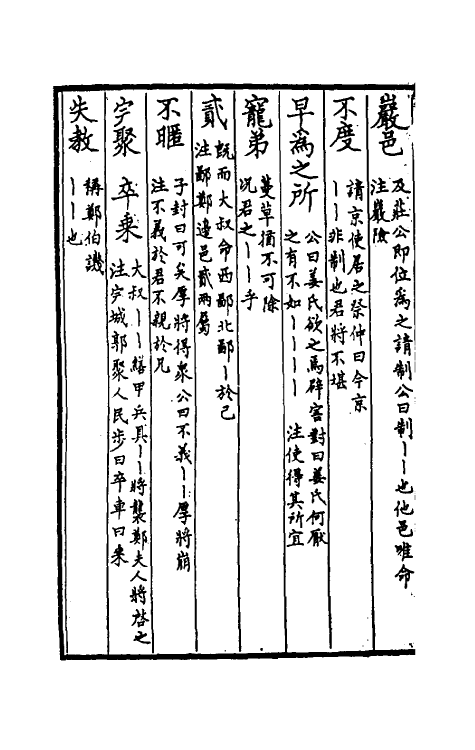 巖邑
及莊公即位為之請制公曰制〡〡也他邑唯命
注巖險
不度
請京使居之祭仲曰今京
〡〡非制也君將不堪
早為之所
公曰姜氏欲之焉辟害對曰姜氏何厭
之有不如〡〡〡〡 注使得其所宜
寵弟
蔓草猶不可除
况君之〡〡乎
貳
既而大叔命西鄙北鄙〡於己
注鄙鄭邊邑貳兩屬
不暱
子封曰可矣厚將得衆公曰不義〡〡厚將崩
注不義於君不親於兄
完聚 卒乗
大叔〡〡繕甲兵具〡〡將襲鄭夫人將啓之
注完城郭聚人民步曰卒車曰乗
失教
稱鄭伯譏
〡〡也